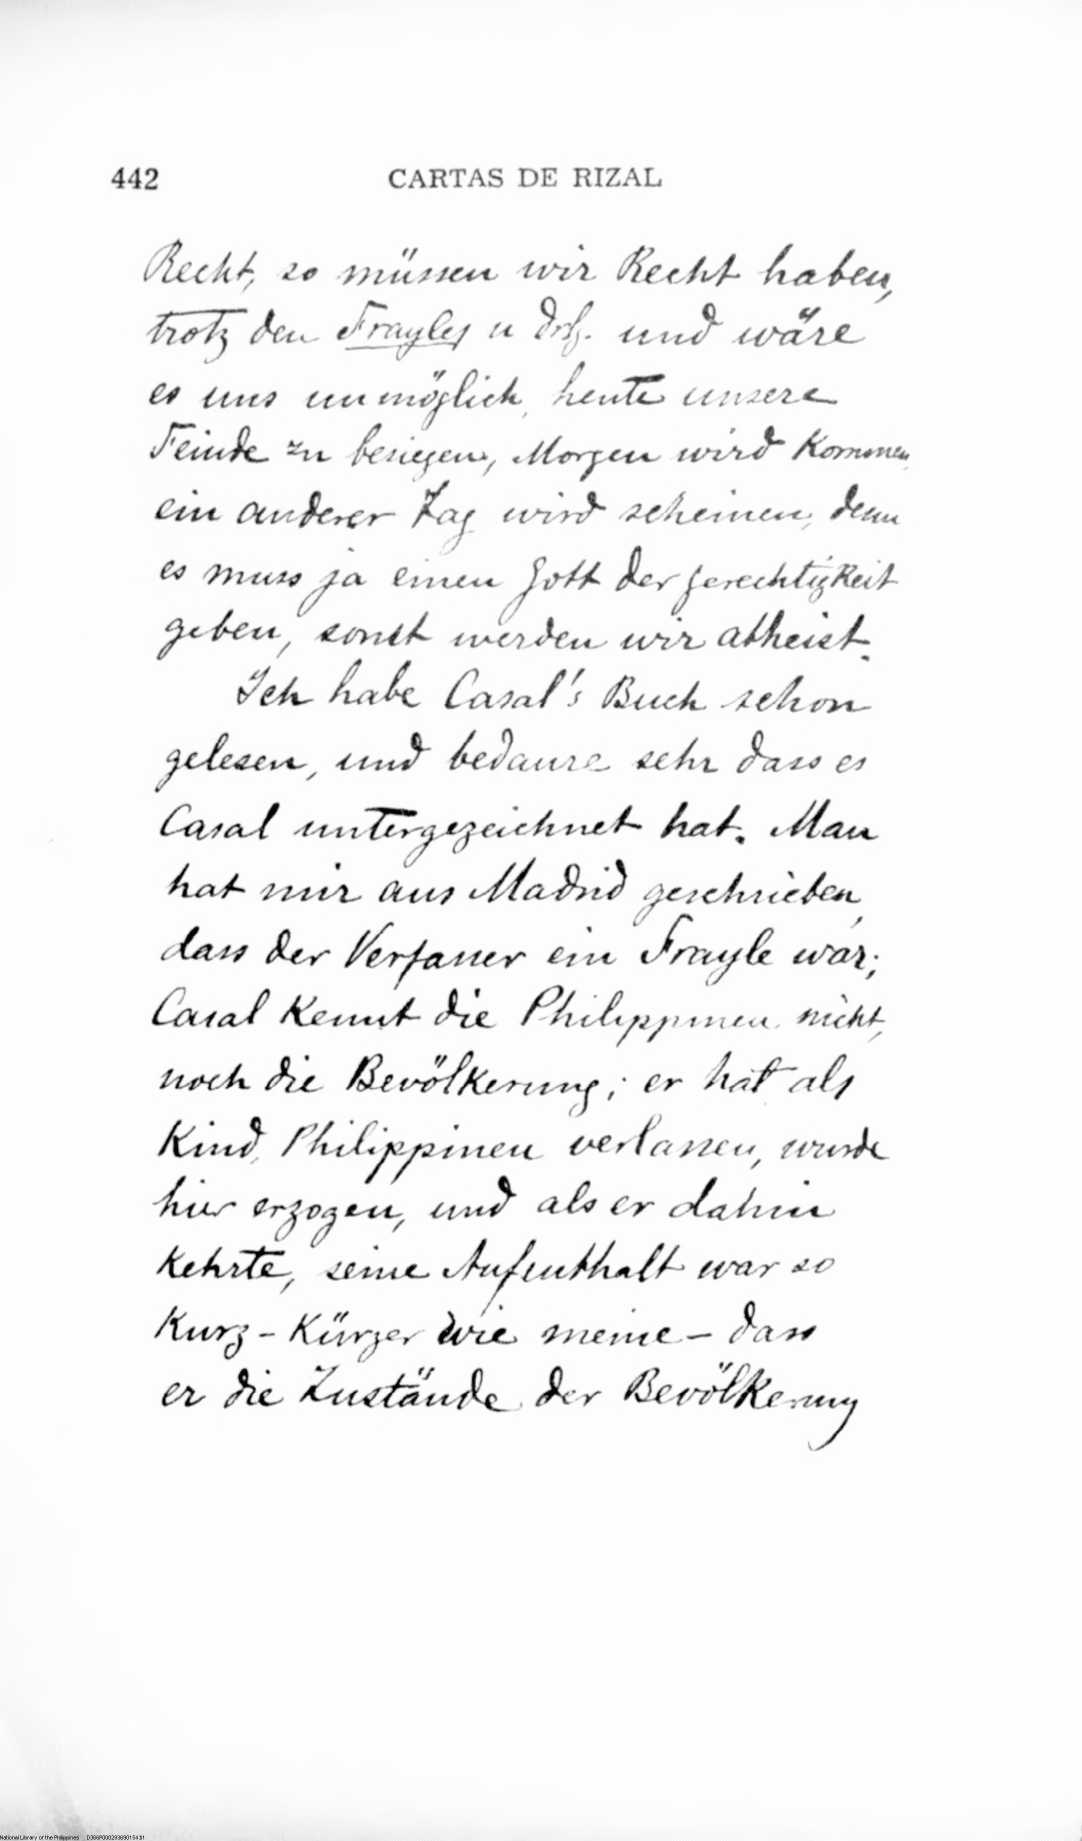 442 CARTAS DE RIZAL
Recht, so müssen wir Recht haben,
trotz den Frayles u und wäre
es uns unmöglich, heute unsere
Feinde zu besiegen, Morgen wird Kommen,
ein anderer Tag wird scheinen, denn
es muss ja einen Gott der gerechtigkeit
geben, sonst werden wir atheist.
Ich habe Casal's Buch schon
gelesen, und bedaure sehr dass es
Casal untergezeichnet hat. Man
hat mir aus Madrid geschrieben,
dass der Verfasser ein Frayle war;
Casal Kennt die Philippinen nicht,
noch die Bevölkerung; er hat als
Kind, Philippinen verlassen, wurde
hier erzogen, und als er dahin
kehrte, seine Aufenthalt war so
Kurz - Kürzer wie meine - dass
er die Zustände der Bevölkerung
National Library of the Philippines